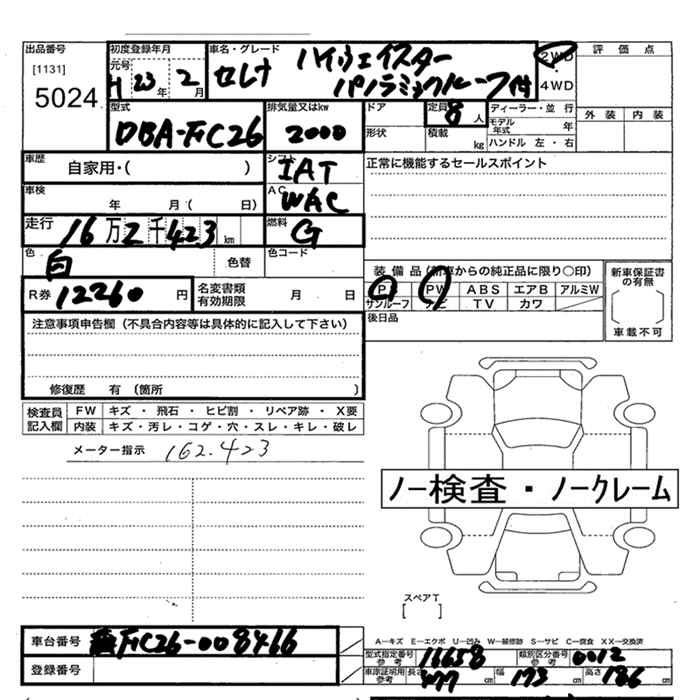 出品番号
[1131]
5024
初度登録年月
元号 H 23年 2月
車名・グレード
セレナ ハイウェイスター
パノラミックルーフ付
2WD
4WD
評価点
外装 内装
型式
DBA-FC26
排気量又はkw
2000
ドア
形状
定員 8 人
積載 kg
ディーラー・並行
モデル年式 年
ハンドル 左・右
車歴
自家用・( )
シフト
IAT
正常に機能するセールスポイント
車検
年 月 ( 日)
AC
WAC
走行
16万2千423km
燃料
G
色
白
色替
色コード
R券 12260 円
名変書類
有効期限
月 日
装備品(新車からの純正品に限り○印)
PS PW ABS エアB アルミW
サンルーフ ナビ TV カワ
後日品
新車保証書
の有無
[ ]
車載不可
注意事項申告欄(不具合内容等は具体的に記入して下さい)
修復歴 有(箇所 )
検査員
記入欄
FW キズ・飛石・ヒビ割・リペア跡・X要
内装 キズ・汚レ・コゲ・穴・スレ・キレ・破レ
メーター指示 162.423
ノー検査・ノークレーム
スペアT
[ ]
車台番号 FC26-008466
登録番号
A―キズ E―エクボ U―凹み W―補修跡 S―サビ C―腐食 XX―交換済
型式指定番号
参考
16658
類別区分番号
参考
0012
車庫証明用
参考
長さ 477 cm 幅 173 cm 高さ 186 cm